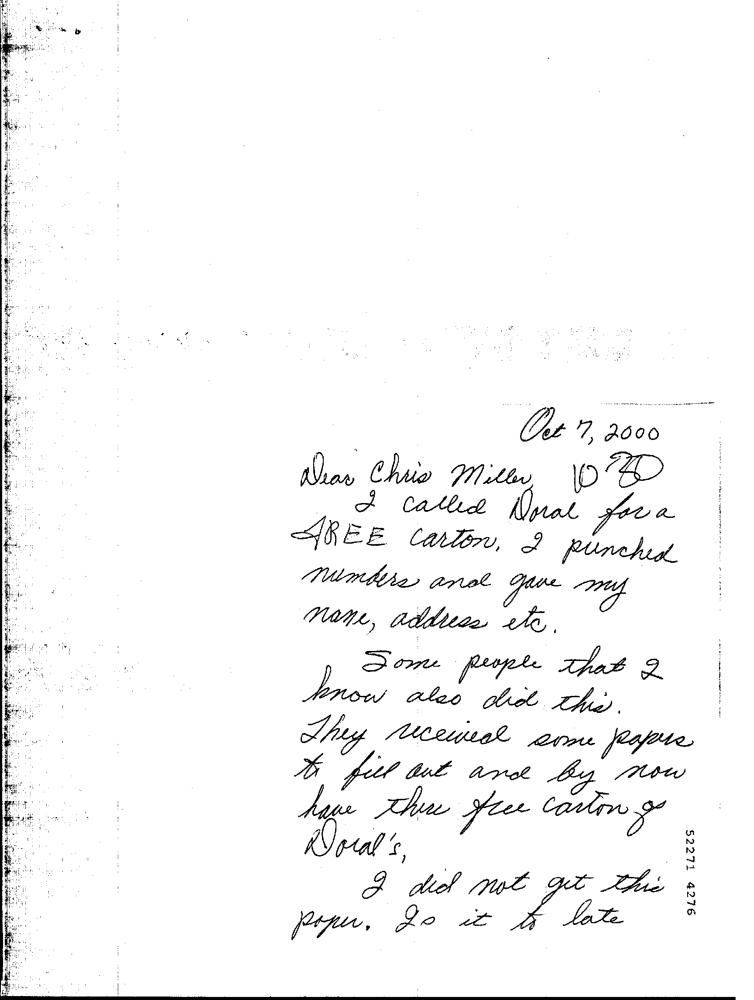 Oct 7, 2000
Dear Chris Miller,
I called Doral for a
FREE carton. I punched
numbers and gave my
name, address etc.
Some people that I
know also did this.
They received some papers
to fill out and by now
have there free carton of
Doral's,
I did not get this
paper. Is it to late
52271 4276